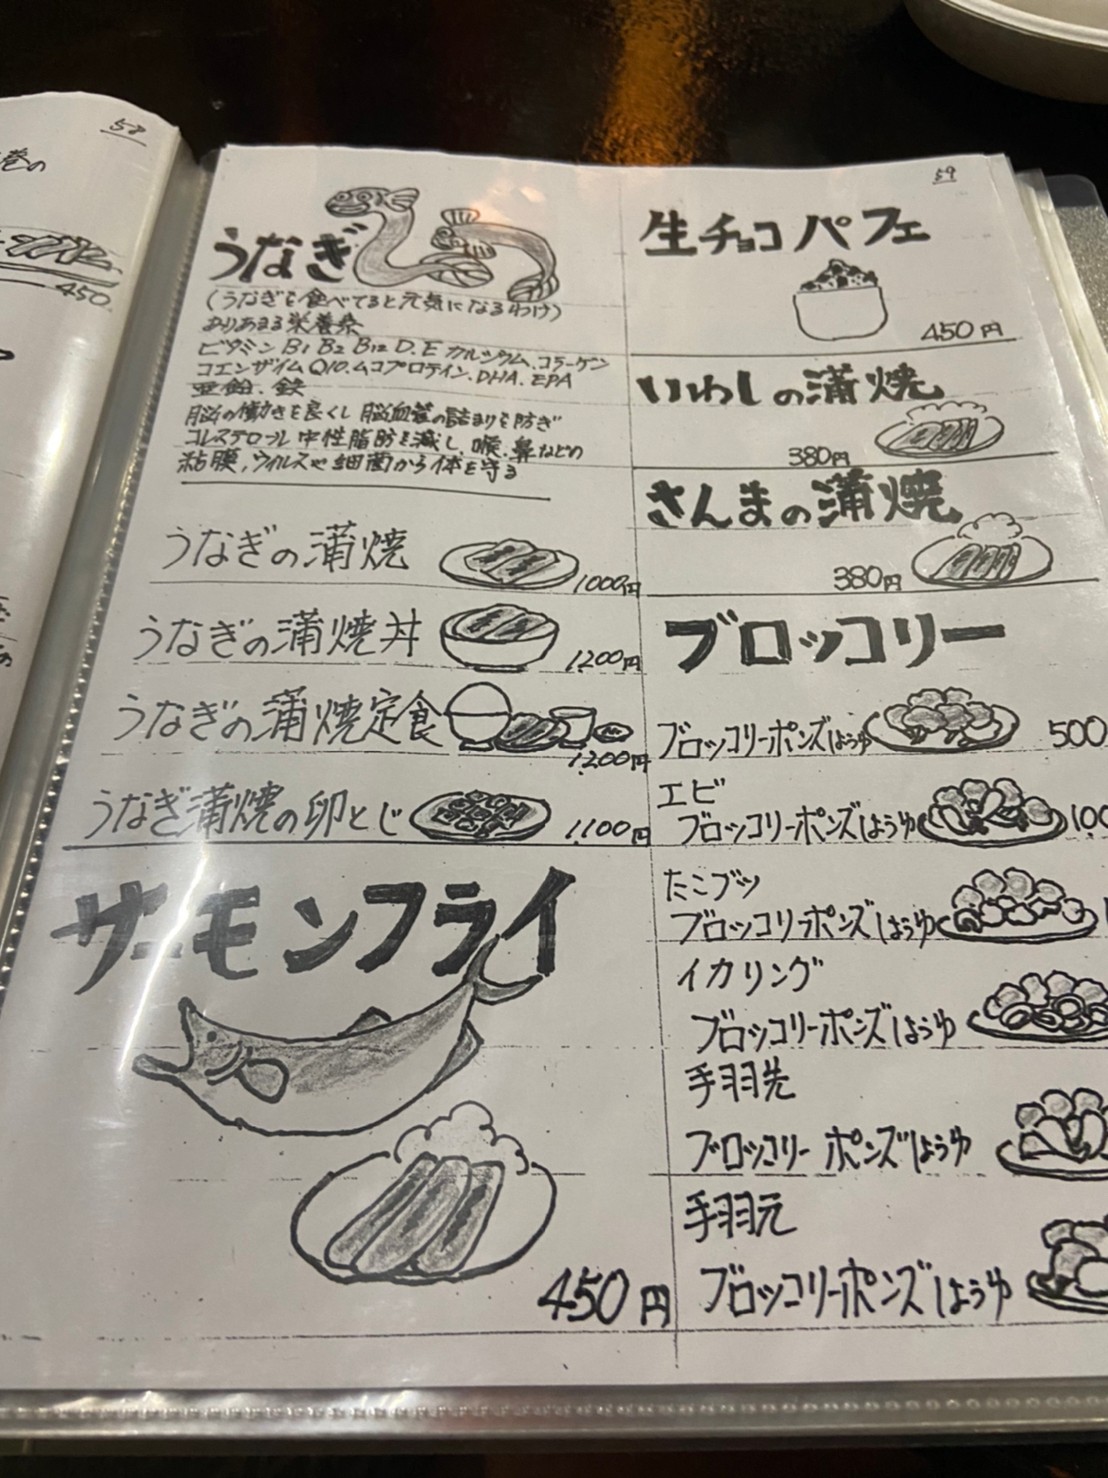 58
巻の
450
59
うなぎ
(うなぎを食べてると元気になるわけ)
ありあまる栄養素
ビタミン B1 B2 B12 D.E カルシウム.コラーゲン
コエンザイムQ10.ムコプロテイン.DHA.EPA
亜鉛.鉄
脳の働きを良くし 脳血管の詰まりを防ぎ
コレステロール 中性脂肪を減し、喉.鼻などの
粘膜,ウイルスや細菌から体を守る
うなぎの蒲焼
1000円
うなぎの蒲焼丼
1200円
うなぎの蒲焼定食
1200円
うなぎ蒲焼の卵とじ
1,100円
サーモンフライ
450円
生チョコパフェ
450円
いわしの蒲焼
380円
さんまの蒲焼
380円
ブロッコリー
ブロッコリーポンズしょうゆ
500
エビ
ブロッコリーポンズしょうゆ
たこブツ
ブロッコリーポンズしょうゆ
イカリング
ブロッコリーポンズしょうゆ
手羽先
ブロッコリーポンズしょうゆ
手羽元
ブロッコリーポンズしょうゆ